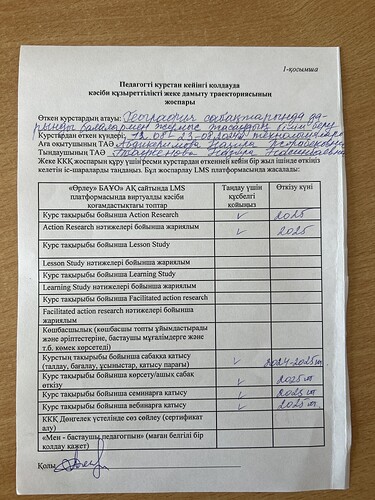 1-қосымша
Педагогті курстан кейінгі қолдауда
кәсіби құзыреттілікті жеке дамыту траекториясының
жоспары
Өткен курстардың атауы: География сабақтарында да-
рынды балалармен жұмыс жасаудың білім беру
Курстардан өткен күндері: 12.08-23.08.2024 технологиялары
Аға оқытушының ТАӘ Абдикеримова Назила
Тыңдаушының ТАӘ
Жеке ККҚ жоспарын құру үшін ресми курстардан өткеннен кейін бір жыл ішінде өткіңіз
келетін іс-шараларды таңдаңыз. Бұл жоспарлау LMS платформасында жасалады:
«Өрлеу» БАҰО» АҚ сайтында LMS платформасында виртуалды кәсіби қоғамдастықтағы топтар Таңдау үшін құсбелгі қойыңыз Өткізу күні
Курс тақырыбы бойынша Action Research ✓ 2025
Action Research нәтижелері бойынша жариялым ✓ 2025
Курс тақырыбы бойынша Lesson Study
Lesson Study нәтижелері бойынша жариялым
Курс тақырыбы бойынша Learning Study
Learning Study нәтижелері бойынша жариялым
Курс тақырыбы бойынша Facilitated action research
Facilitated action research нәтижелері бойынша
жариялым
Көшбасшылық (көшбасшы топты ұйымдастырады
және әріптестеріне, бастаушы мұғалімдерге және
т.б. көмек көрсетеді)
Курстың тақырыбы бойынша сабаққа қатысу ✓ 2024-2025ж.
(талдау, бағалау, ұсыныстар, қатысу парағы)
Курс тақырыбы бойынша көрсету/ашық сабақ ✓ 2025ж
өткізу
Курс тақырыбы бойынша семинарға қатысу ✓ 2025ж
Курс тақырыбы бойынша вебинарға қатысу ✓ 2025ж
ККҚ Дөңгелек үстелінде сөз сөйлеу (сертификат
алу)
«Мен - бастаушы педагогпын» (маған белгілі бір
қолдау қажет)
Қолы